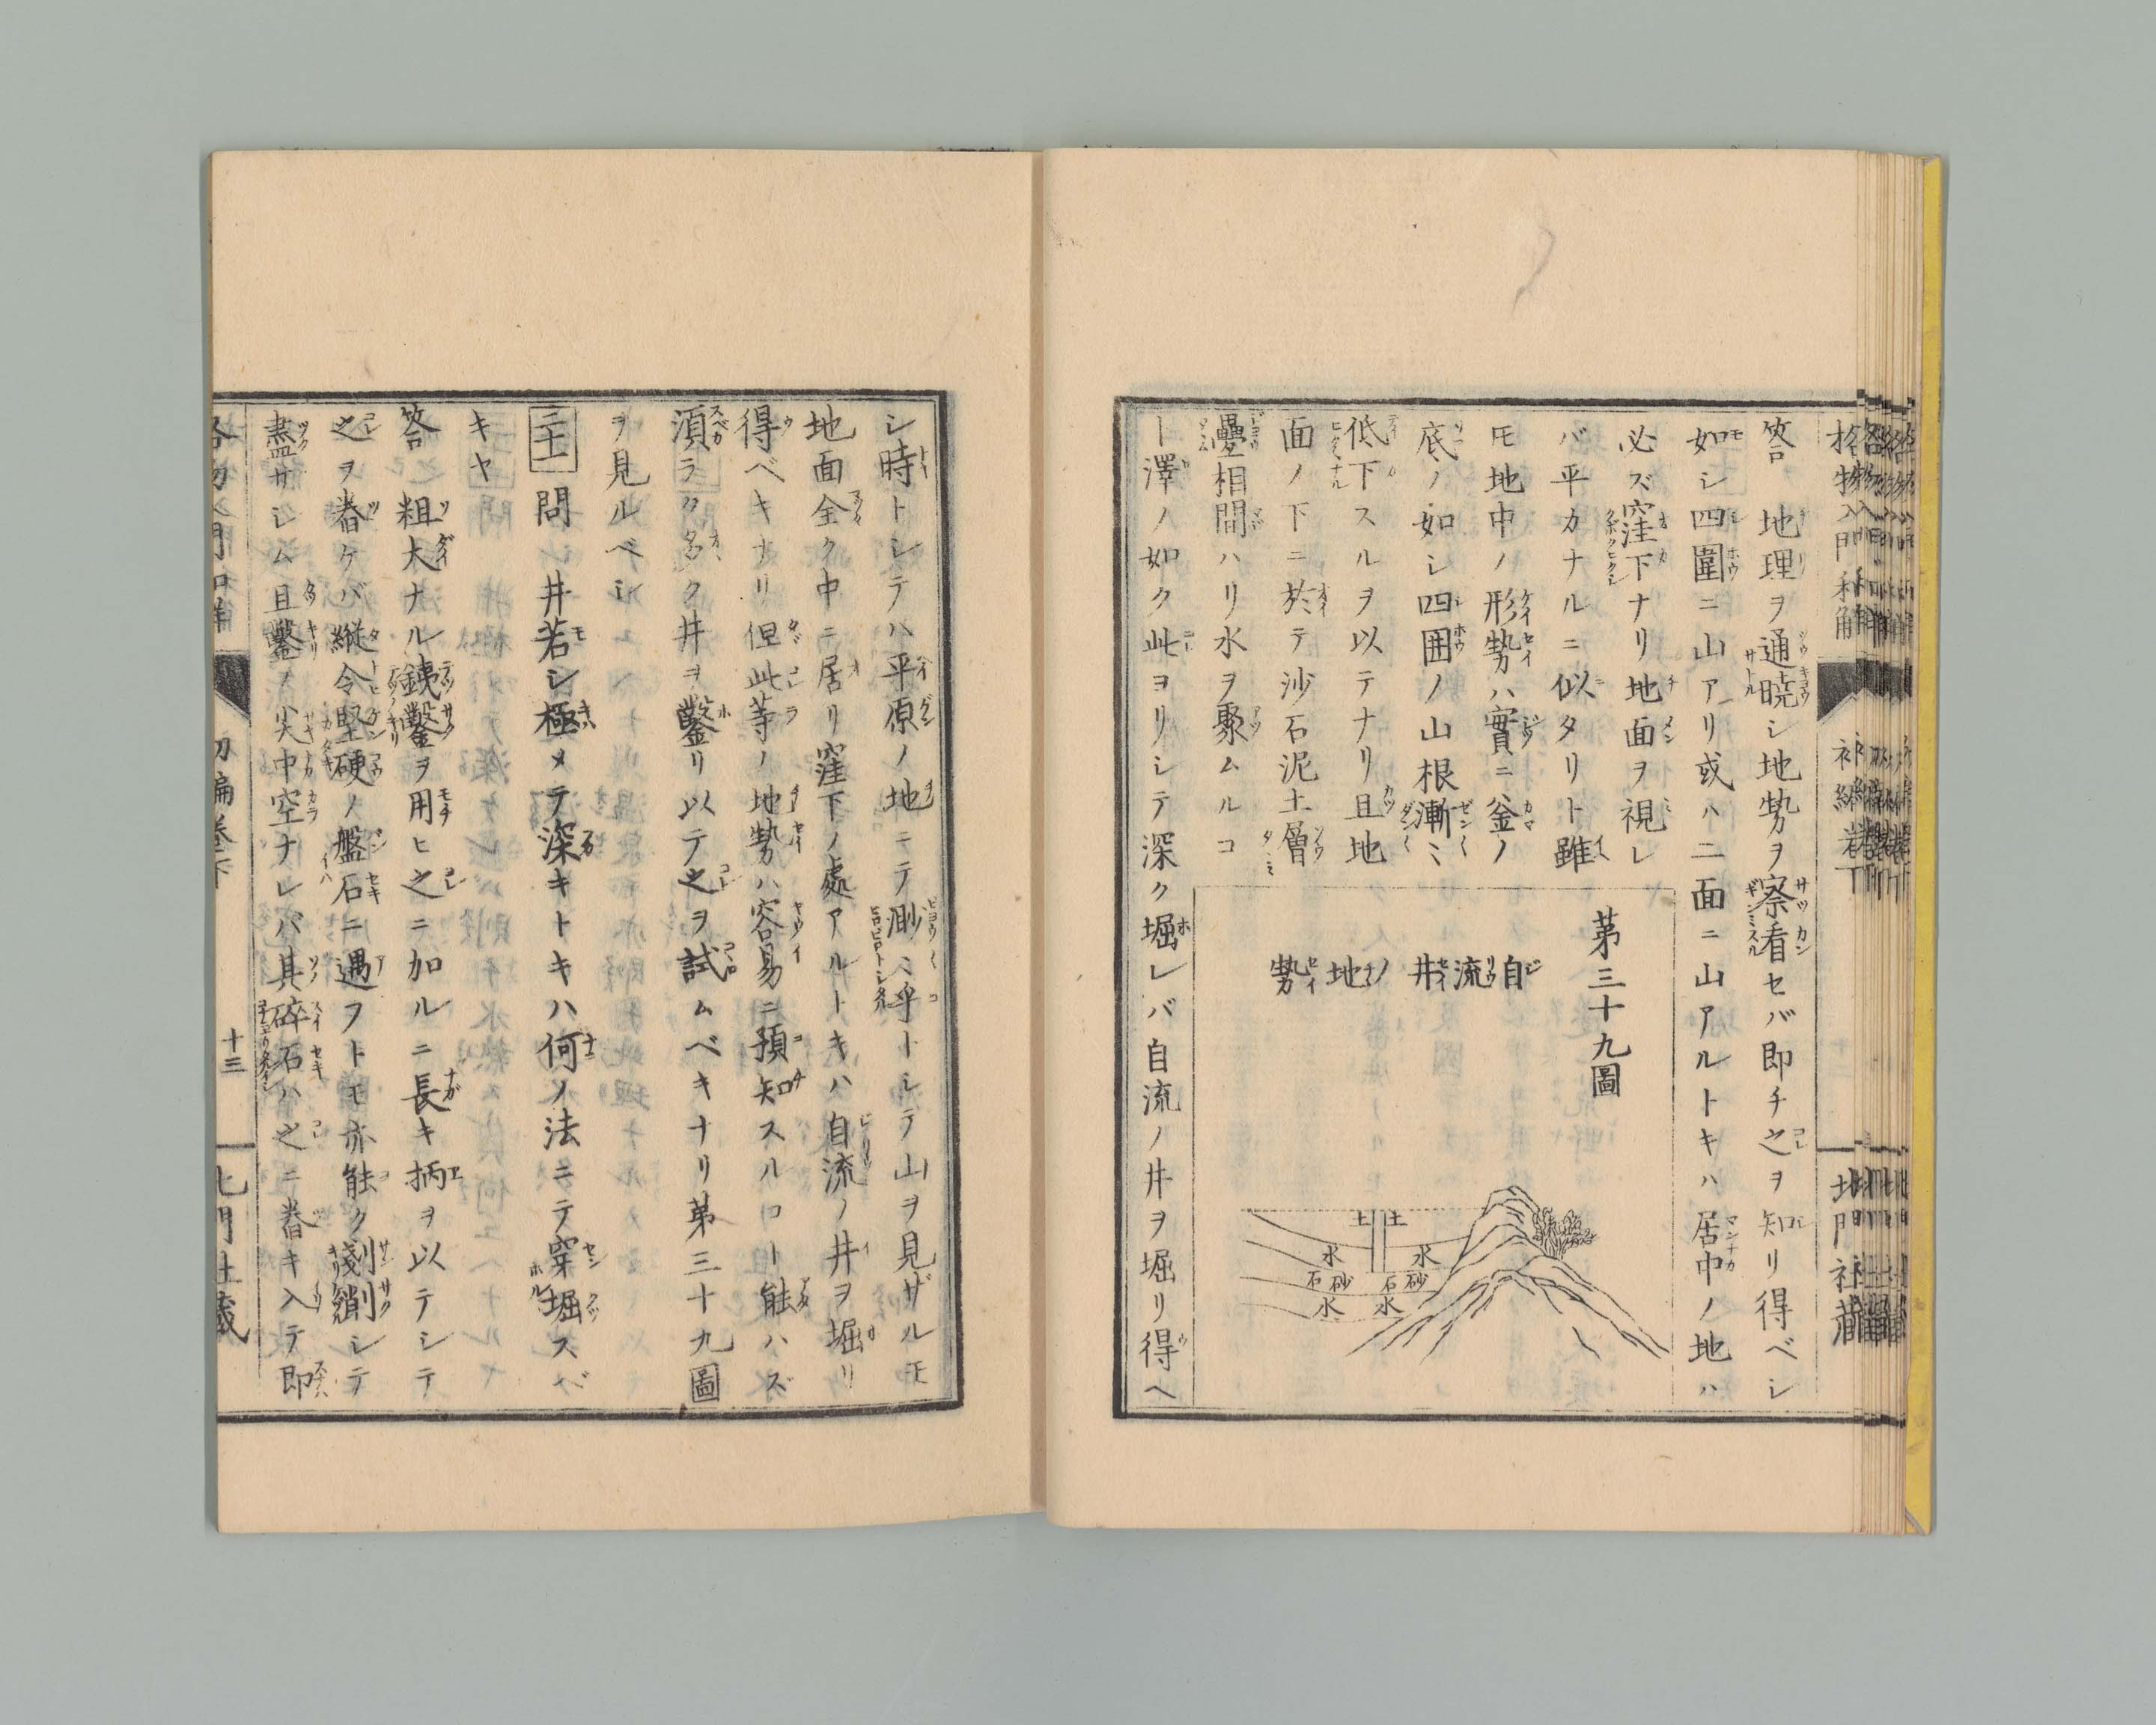 答 地理ヲ通暁シ地勢ヲ察看セバ即チ之ヲ知リ得ベシ
如シ四圍ニ山アリ或ハ二面ニ山アルトキハ居中ノ地ハ
必ズ窪下ナリ地面ヲ視レ
バ平カナルニ似タリト雖
𪜈地中ノ形勢ハ實ニ釜ノ
底ノ如シ四囲ノ山根漸〻
低下スルヲ以テナリ且地
面ノ下ニ於テ沙石泥土層
疊相間ハリ水ヲ聚ムルコ
ト澤ノ如ク此ヨリシテ深ク堀レバ自流ノ井ヲ堀リ得ヘ
第三十九圖
自流井ノ地勢
土 土
水 水
石砂 石砂
水 水
シ時トシテハ平原ノ地ニテ渺〻乎トシテ山ヲ見ザル𪜈
地面全ク中ニ居リ窪下ノ處アルトキハ自流ノ井ヲ堀リ
得ベキナリ但此等ノ地勢ハ容易ニ預知スルコト能ハズ
須ラク多ク井ヲ鑿リ以テ之ヲ試ムベキナリ第三十九圖
ヲ見ルベシ
二十 問 井若シ極メテ深キトキハ何ノ法ニテ穿堀スベ
キヤ
答 粗大ナル銕鑿ヲ用ヒ之ニ加ルニ長キ柄ヲ以テシテ
之ヲ舂ケバ縦令堅硬ノ盤石ニ遇フトモ亦能ク剗削シテ
盡サシム且鑿ノ尖中空ナレバ其碎石ハ之ニ舂キ入テ即
格物入門和解 初編巻下 十三 北門社藏